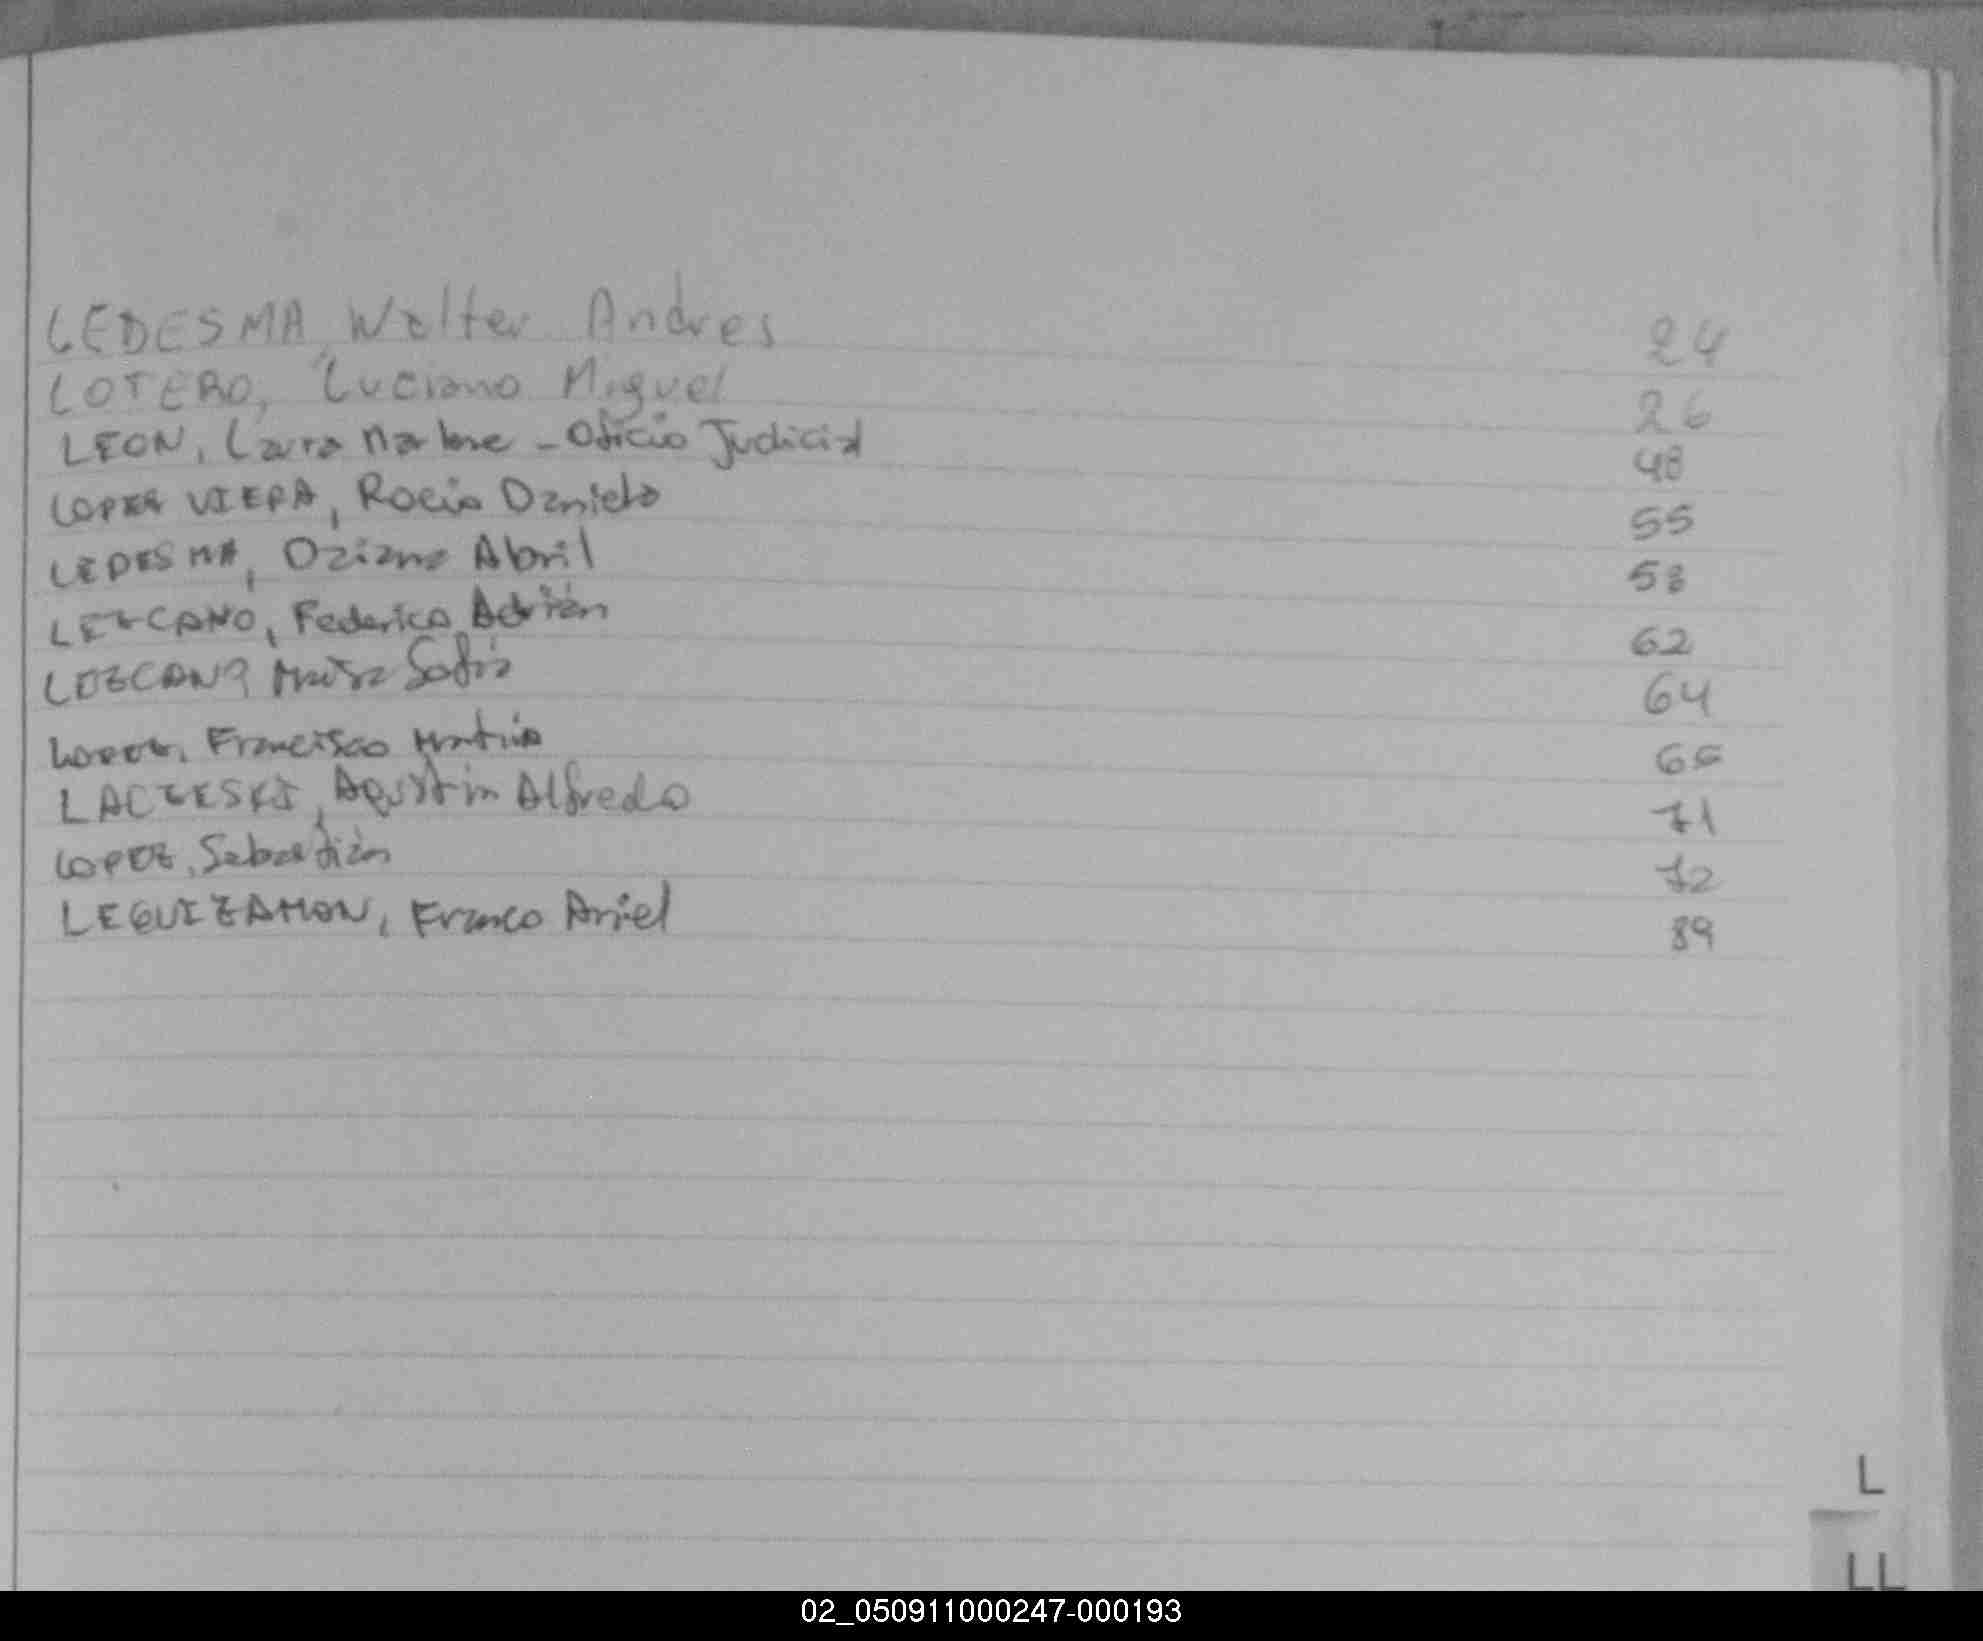 LEDESMA, Walter Andres 24
LOTERO, Luciano Miguel 26
LEON, Laura Marlene - Oficio Judicial 48
LOPEZ VIERA, Rocio Daniela 55
LEDESMA, Oziana Abril 58
LEZCANO, Federico Adrián 62
LEZCANO, Sofia 64
LOPEZ, Francisco Matías 66
LACZESKI, Agustin Alfredo 71
LOPEZ, Sebastián 72
LEGUIZAMON, Franco Ariel 89
L
LL
02_050911000247-000193